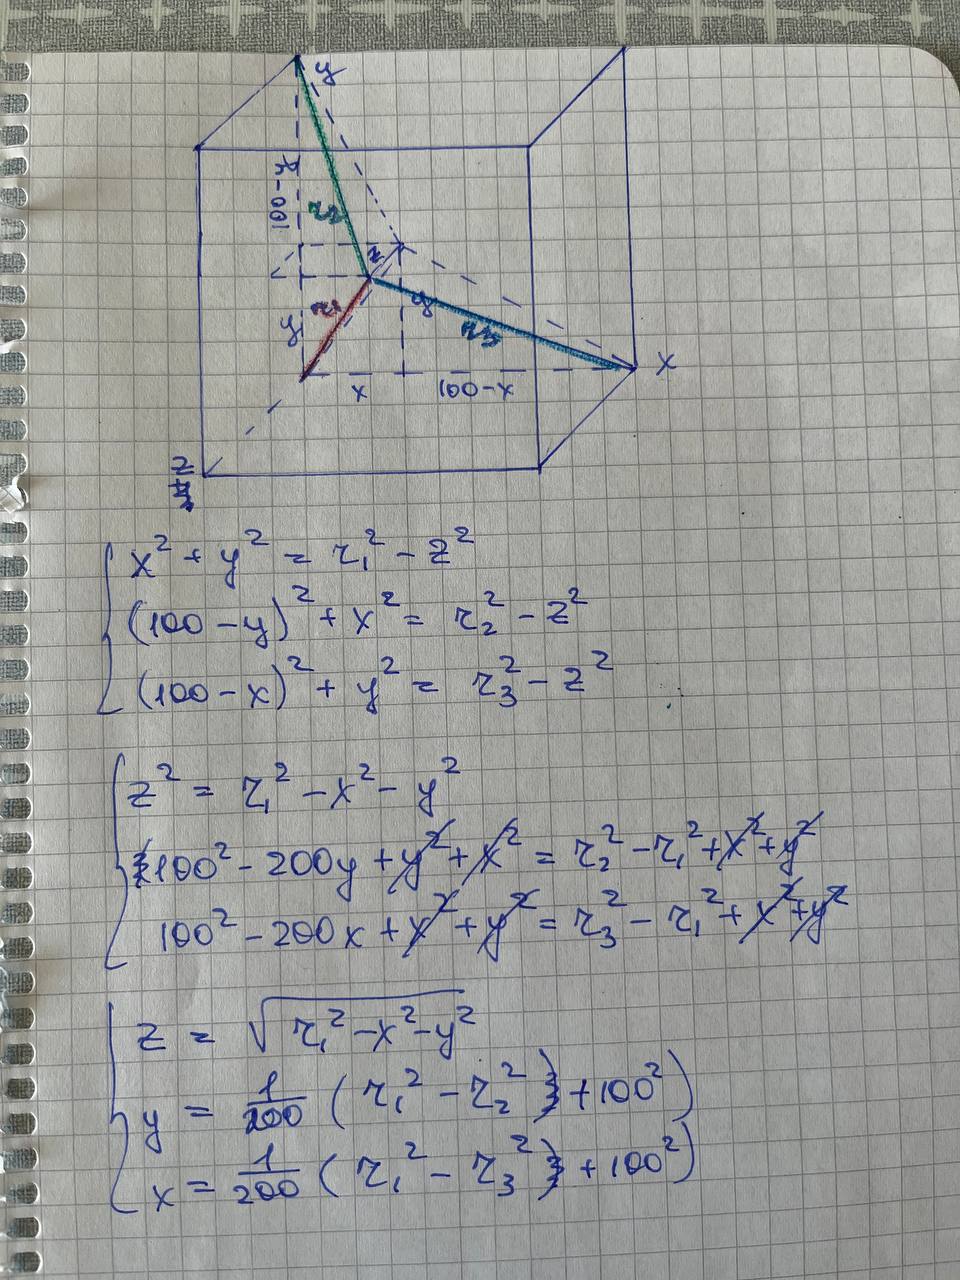 y
100-y
r2
z
r1
y
y
r3
x
x
100-x
z
x² + y² = r₁² - z²
(100 - y)² + x² = r₂² - z²
(100 - x)² + y² = r₃² - z²
z² = r₁² - x² - y²
100² - 200y + y² + x² = r₂² - r₁² + x² + y²
100² - 200x + x² + y² = r₃² - r₁² + x² + y²
z = √(r₁² - x² - y²)
y = 1/200 (r₁² - r₂² + 100²)
x = 1/200 (r₁² - r₃² + 100²)